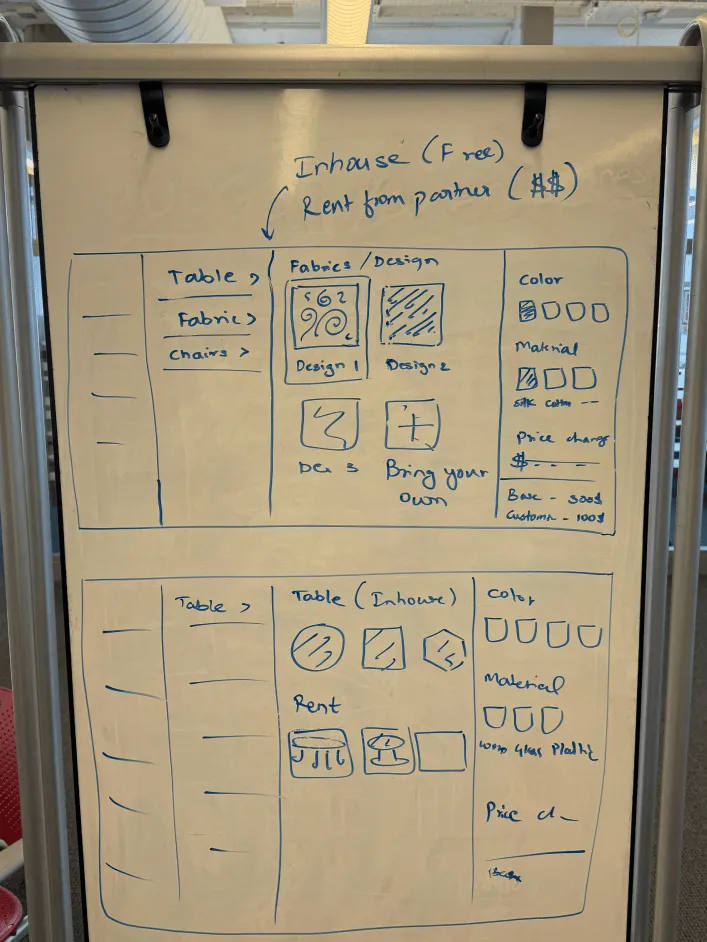 Inhouse (Free)
Rent from partner ($$)
Table >
Fabric >
Chairs >
Fabrics / Design
Design 1
Design 2
Des 3
Bring your
own
Color
Material
Silk Cotton --
Price change
$ - - -
Base - 500$
Custom - 100$
Table >
Table (Inhouse)
Rent
Color
Material
Wood Glass Plastic
Price ch_